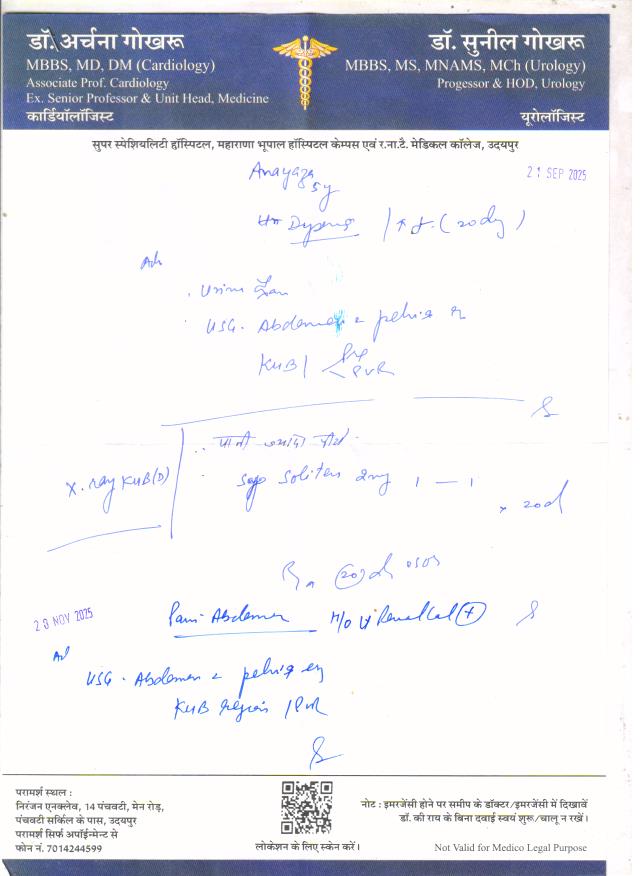 डॉ. अर्चना गोखरू
MBBS, MD, DM (Cardiology)
Associate Prof. Cardiology
Ex. Senior Professor & Unit Head, Medicine
कार्डियॉलॉजिस्ट
डॉ. सुनील गोखरू
MBBS, MS, MNAMS, MCh (Urology)
Progessor & HOD, Urology
यूरोलॉजिस्ट
सुपर स्पेशियलिटी हॉस्पिटल, महाराणा भूपाल हॉस्पिटल केम्पस एवं र.ना.टै. मेडिकल कॉलेज, उदयपुर
21 SEP 2025
5y
Adv
USG. Abdomen & pelvis
KUB / PVR
पानी ज्यादा पीये
X. ray KUB (D)
2mg 1 — 1
x 20d
28 NOV 2025
Pain Abdomen
USG. Abdomen & pelvis
KUB region / PVR
परामर्श स्थल :
निरंजन एनक्लेव, 14 पंचवटी, मेन रोड़,
पंचवटी सर्किल के पास, उदयपुर
परामर्श सिर्फ अपॉईन्मेन्ट से
फोन नं. 7014244599
लोकेशन के लिए स्केन करें।
नोट : इमरजेंसी होने पर समीप के डॉक्टर/इमरजेंसी में दिखावें
डॉ. की राय के बिना दवाई स्वयं शुरू/चालू न रखें।
Not Valid for Medico Legal Purpose